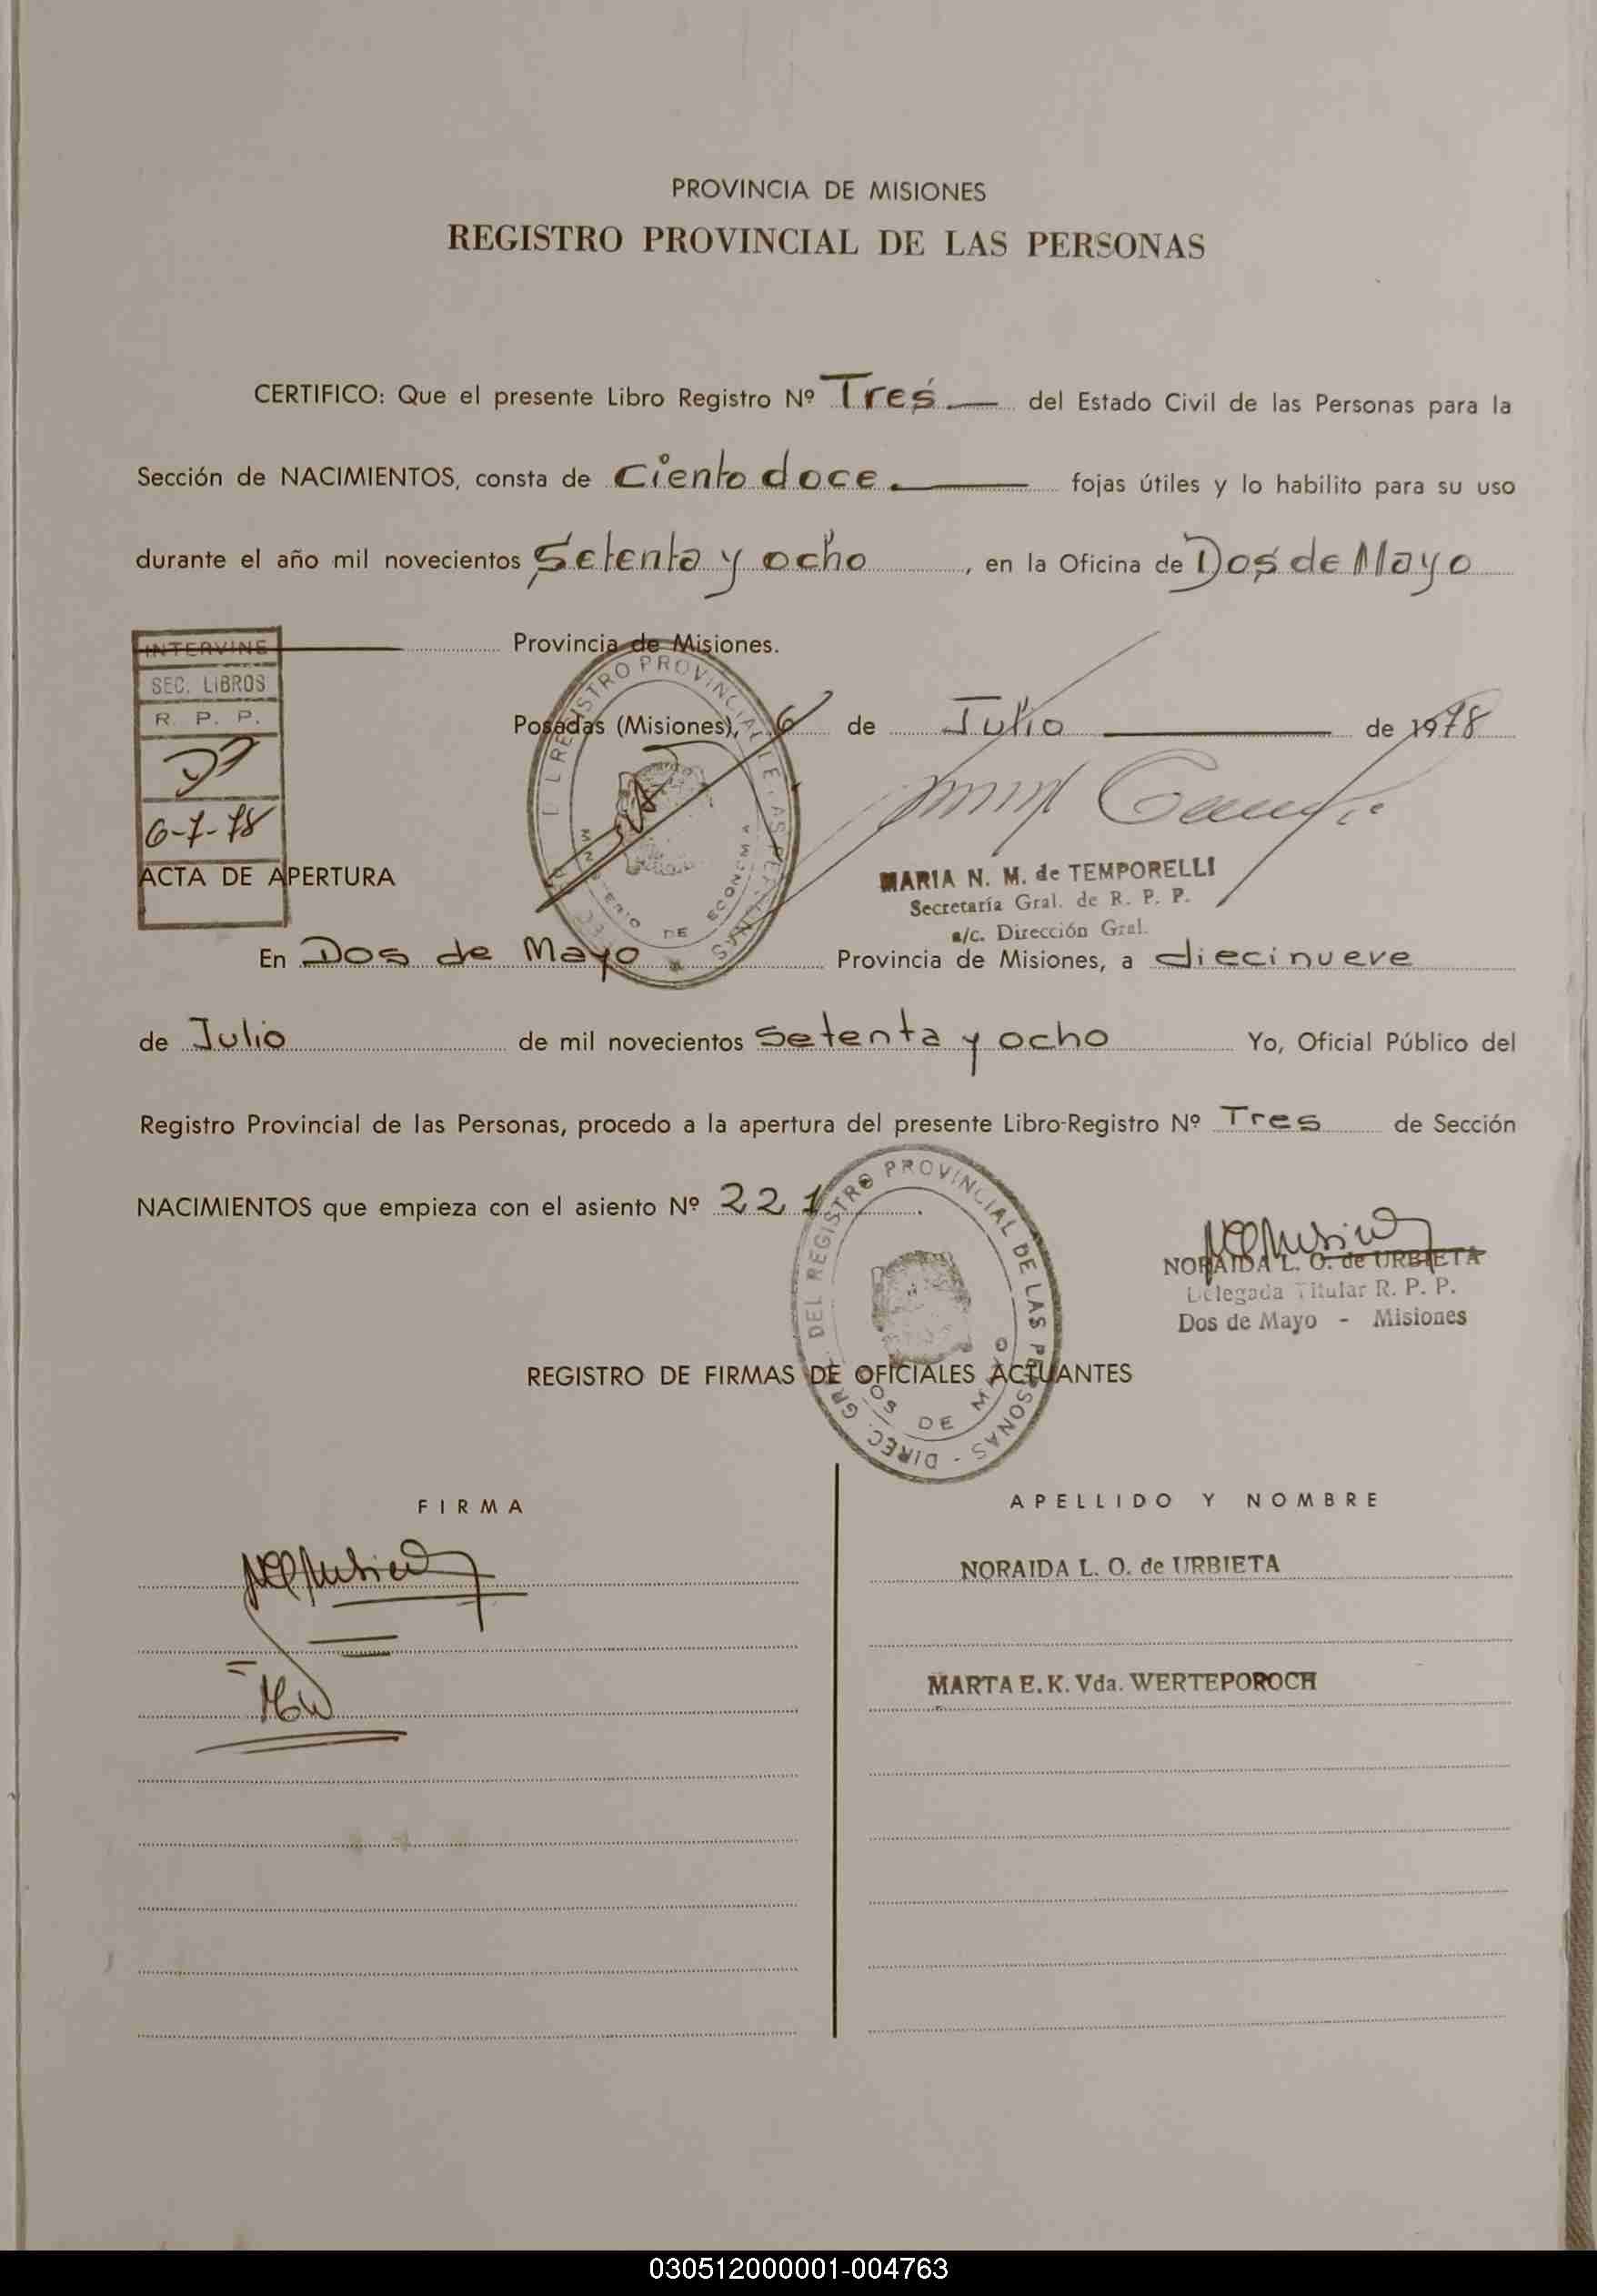 PROVINCIA DE MISIONES
REGISTRO PROVINCIAL DE LAS PERSONAS
CERTIFICO: Que el presente Libro Registro Nº Tres del Estado Civil de las Personas para la
Sección de NACIMIENTOS, consta de Ciento doce. fojas útiles y lo habilito para su uso
durante el año mil novecientos Setenta y ocho, en la Oficina de Dos de Mayo
Provincia de Misiones.
INTERVINE
SEC. LIBROS
R. P. P.
6-7-78
Posadas (Misiones), 6 de Julio de 1978
DEL REGISTRO PROVINCIAL DE LAS PERSONAS
MINISTERIO DE ECONOMIA
MARIA N. M. de TEMPORELLI
Secretaría Gral. de R. P. P.
a/c. Dirección Gral.
ACTA DE APERTURA
En Dos de Mayo Provincia de Misiones, a diecinueve
de Julio de mil novecientos setenta y ocho Yo, Oficial Público del
Registro Provincial de las Personas, procedo a la apertura del presente Libro-Registro Nº Tres de Sección
NACIMIENTOS que empieza con el asiento Nº 221.
DIREC. GR. DEL REGISTRO PROVINCIAL DE LAS PERSONAS -
DOS DE MAYO
NORAIDA L. O. de URBIETA
Delegada Titular R. P. P.
Dos de Mayo - Misiones
REGISTRO DE FIRMAS DE OFICIALES ACTUANTES
FIRMA
APELLIDO Y NOMBRE
NORAIDA L. O. de URBIETA
MARTA E. K. Vda. WERTEPOROCH
030512000001-004763